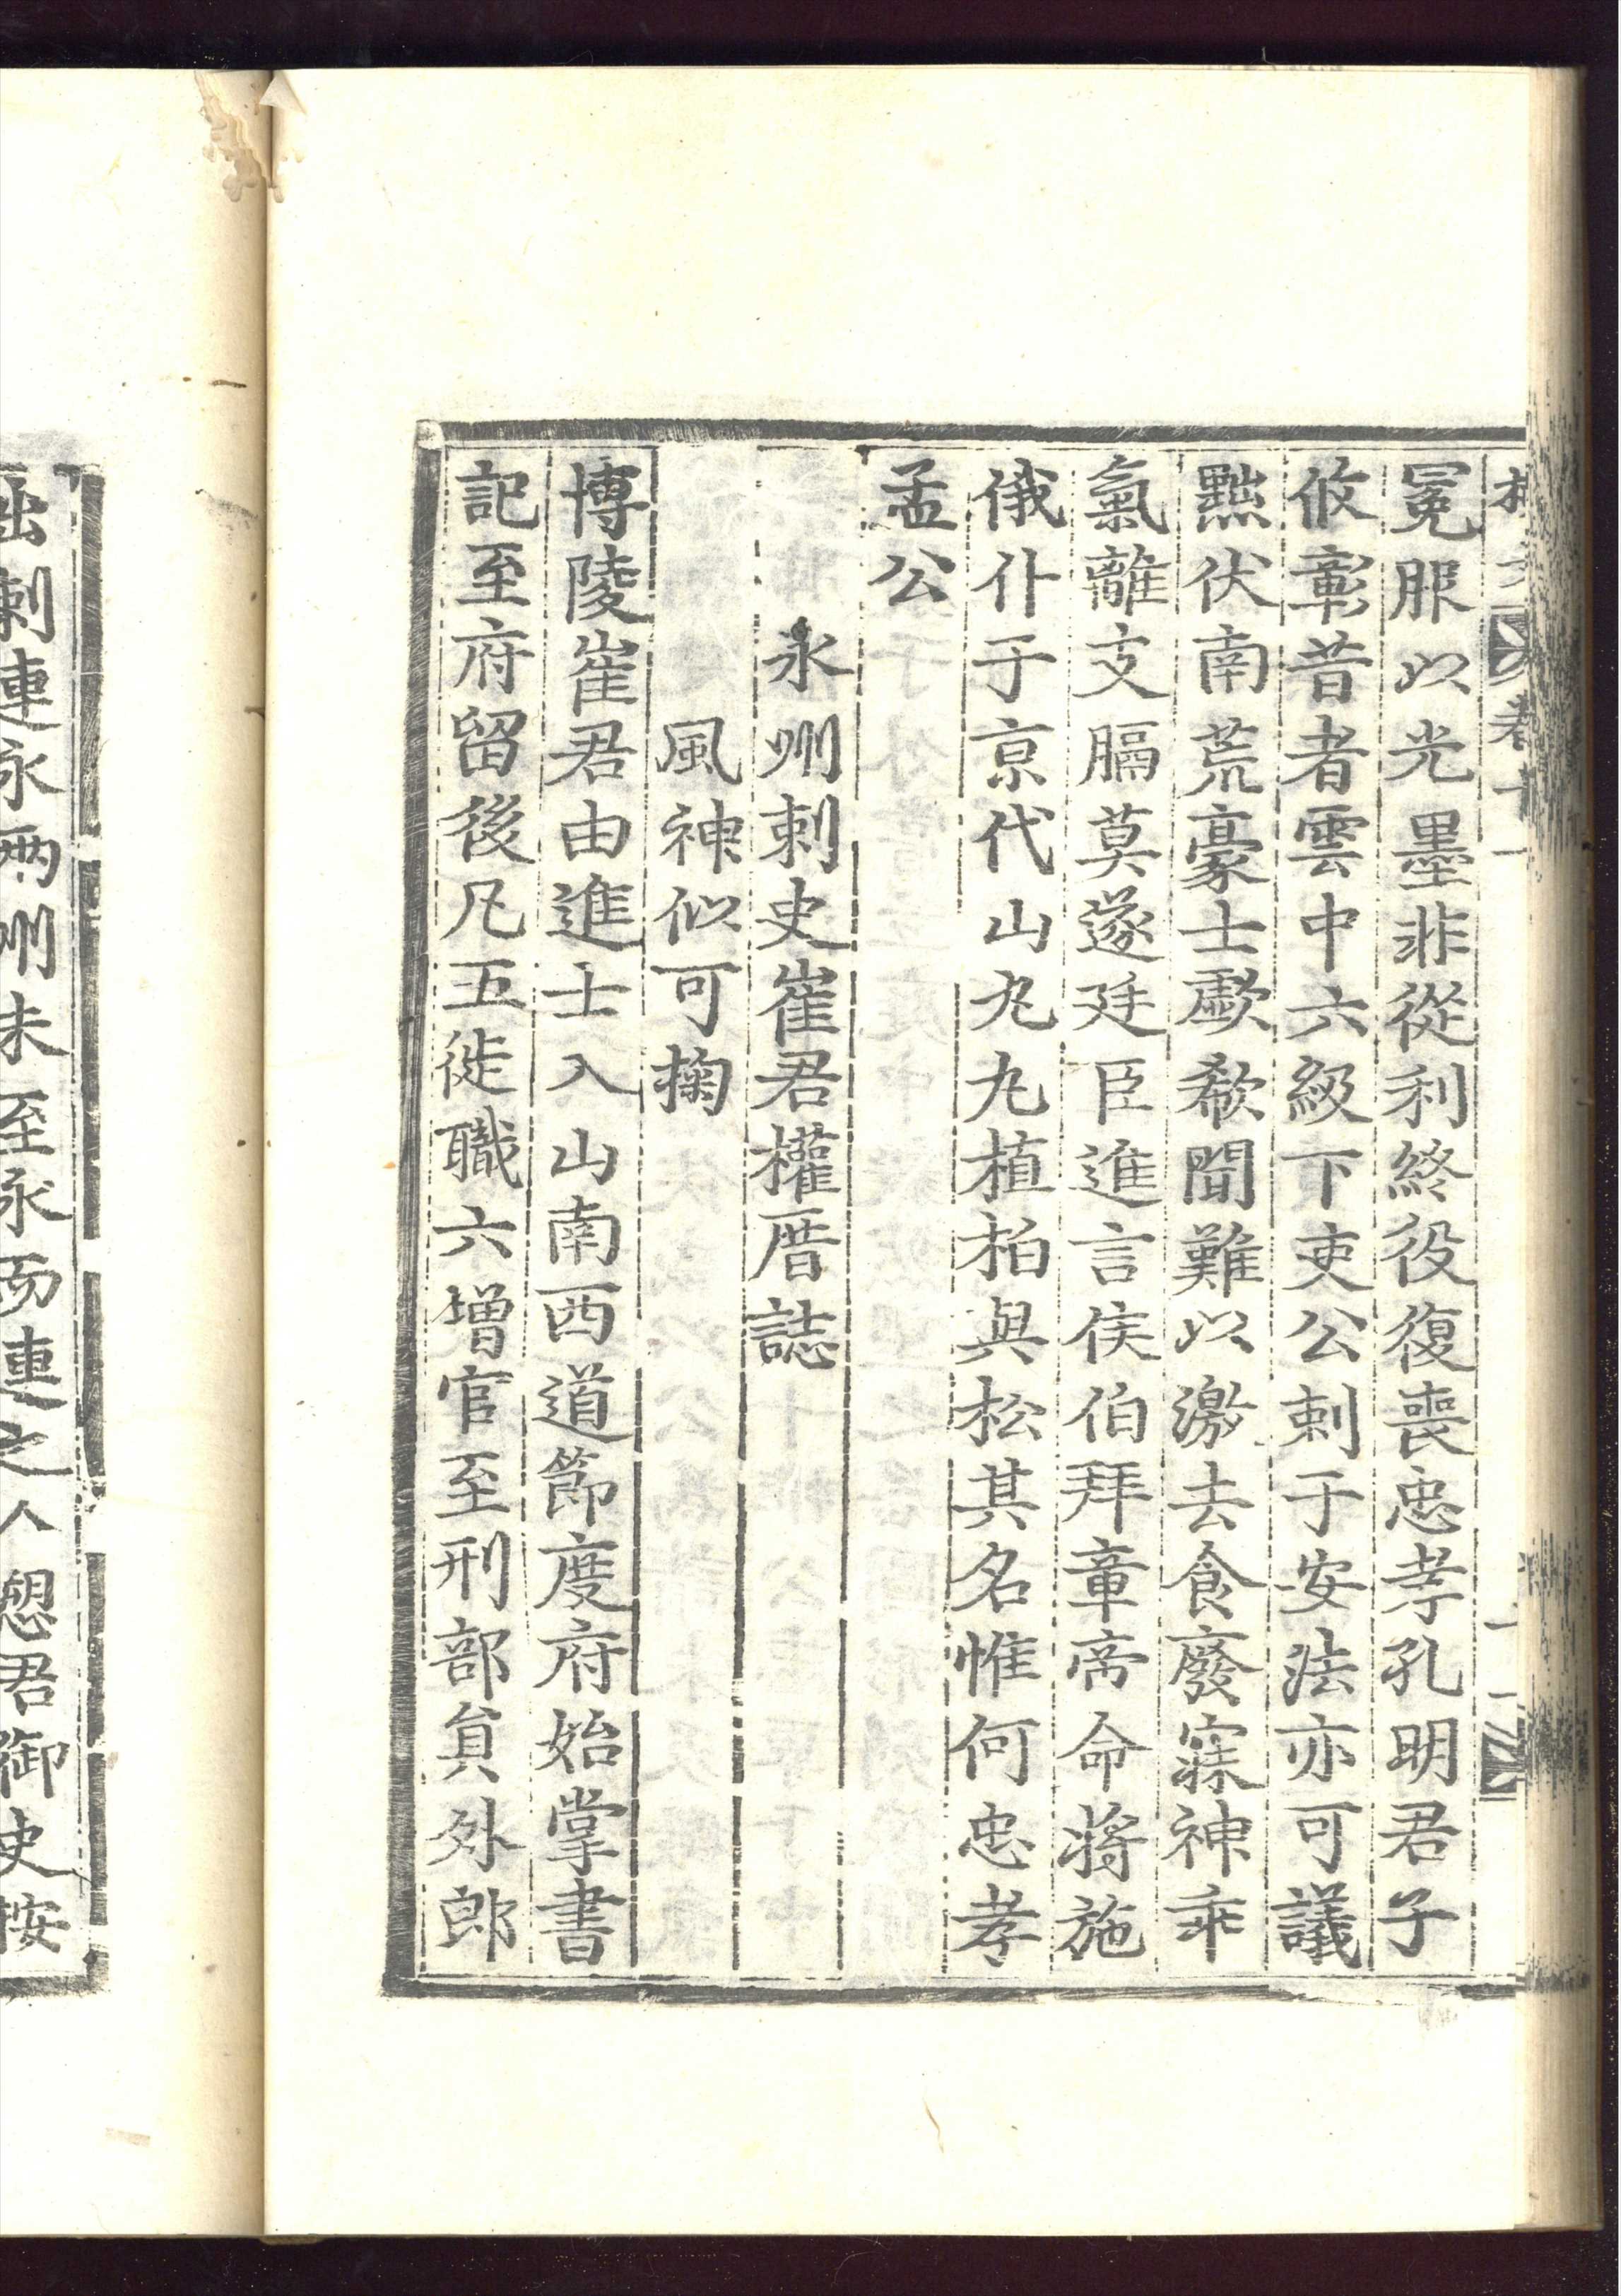 卷十
冕服以光墨非從利終役復喪忠孝孔明君子
攸彰昔者雲中六級下吏公刺于安法亦可議
黜伏南荒豪士歔欷聞難以激去食廢寐神乖
氣離支膈莫遂廷臣進言侯伯拜章帝命將施
俄仆于京代山丸丸植柏與松其名惟何忠孝
孟公
永州刺史崔君權厝誌
風神似可掬
博陵崔君由進士入山南西道節度府始掌書
記至府留後凡五徙職六增官至刑部員外郎
出刺連永兩州未至永而連之人愬君御史按